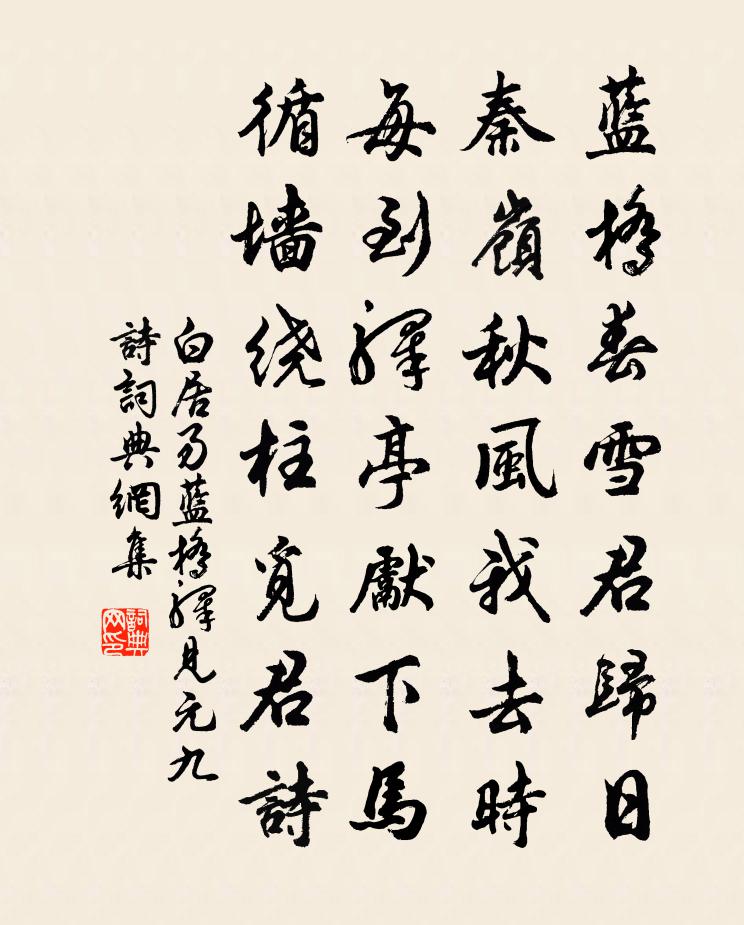 藍橋春雪君歸日
秦嶺秋風我去時
每到驛亭獻下馬
循墙绕柱覓君詩
白居易藍橋驛見元九
詩詞典網集
詞典
网印